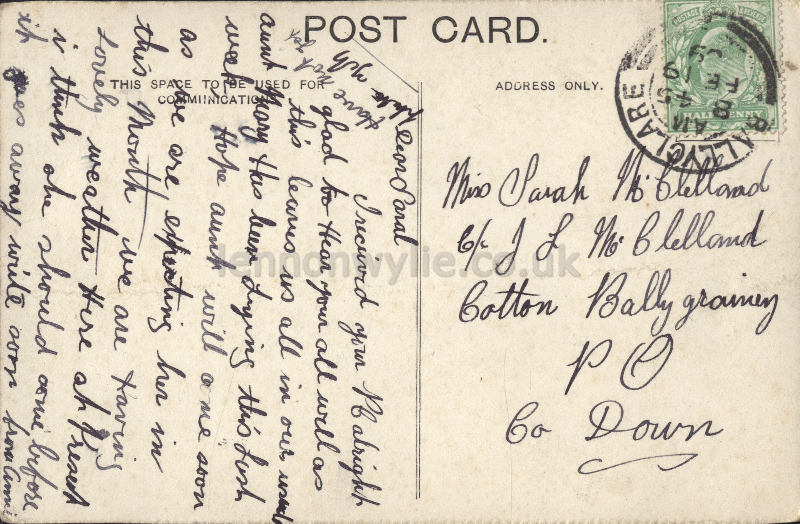 POST CARD.
THIS SPACE TO BE USED FOR
COMMUNICATION.
ADDRESS ONLY.
BALLYCLARE
8 45 AM
FE 8
09
HALFPENNY
Miss Sarah McClelland
C/o J L McClelland
Cotton Ballygrainey
P O
Co Down
Dear Sarah
I received your P C alright
glad to Hear your all well as
this leaves us all in our usual
aunt Mary Has been dying this last
week Hope aunt will come soon
as we are expecting her in
this Month we are Having
Lovely weather Here at Present
i think she should come before
it goes away write soon from Annie
lennonwylie.co.uk